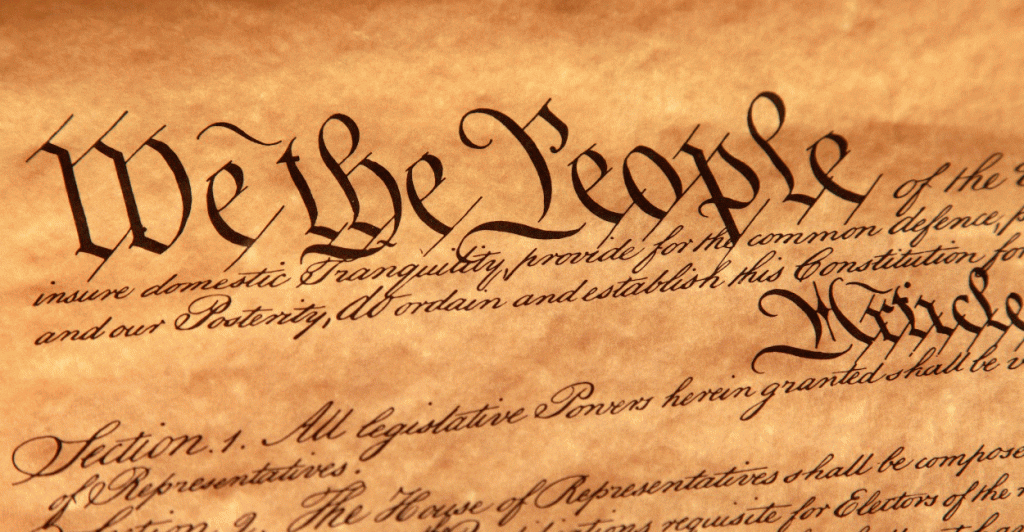 We the People of the
insure domestic Tranquility, provide for the common defence,
and our Posterity, do ordain and establish this Constitution for
Article
Section. 1. All legislative Powers herein granted shall be
of Representatives.
The House of Representatives shall be compose
requisite for Electors of the